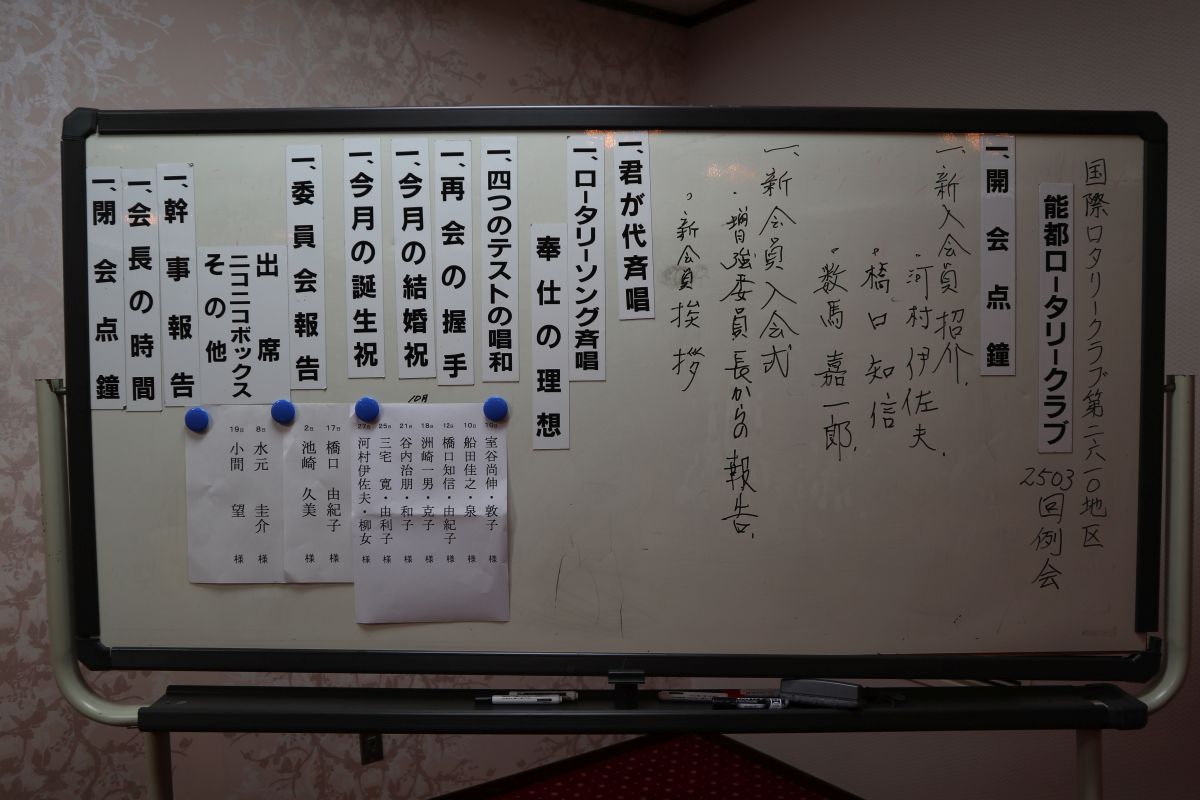 国際ロータリークラブ第二六一〇地区
能都ロータリークラブ
2503回例会
一、開会点鐘
一、新入会員紹介.
・河村伊佐夫.
・橋口知信
・数馬嘉一郎.
一、新会員入会式
・増強委員長からの報告.
・新会員挨拶
一、君が代斉唱
一、ロータリーソング斉唱
奉仕の理想
一、四つのテストの唱和
一、再会の握手
一、今月の結婚祝
一、今月の誕生祝
一、委員会報告
出席
ニコニコボックス
その他
一、幹事報告
一、会長の時間
一、閉会点鐘
10月
室谷尚伸・敦子 様
10日 船田佳之・泉 様
12日 橋口知信・由紀子 様
18日 洲崎一男・克子 様
21日 谷内治朋・和子 様
25日 三宅 寛・由利子 様
27日 河村伊佐夫・柳女 様
17日 橋口 由紀子 様
2日 池崎 久美 様
8日 水元 圭介 様
19日 小間 望 様